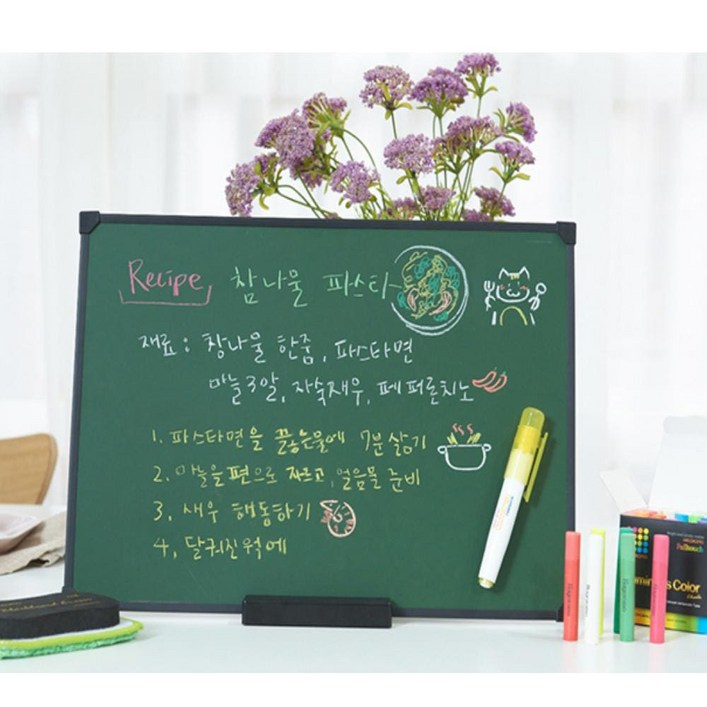 Recipe 참나물 파스타
재료 : 참나물 한줌, 파스타면
마늘3알, 자숙새우, 페퍼론치노
1. 파스타면을 끓는물에 7분 삶기
2. 마늘을 편으로 자르고, 얼음물 준비
3. 새우 해동하기
4, 달궈진 웍에
Color